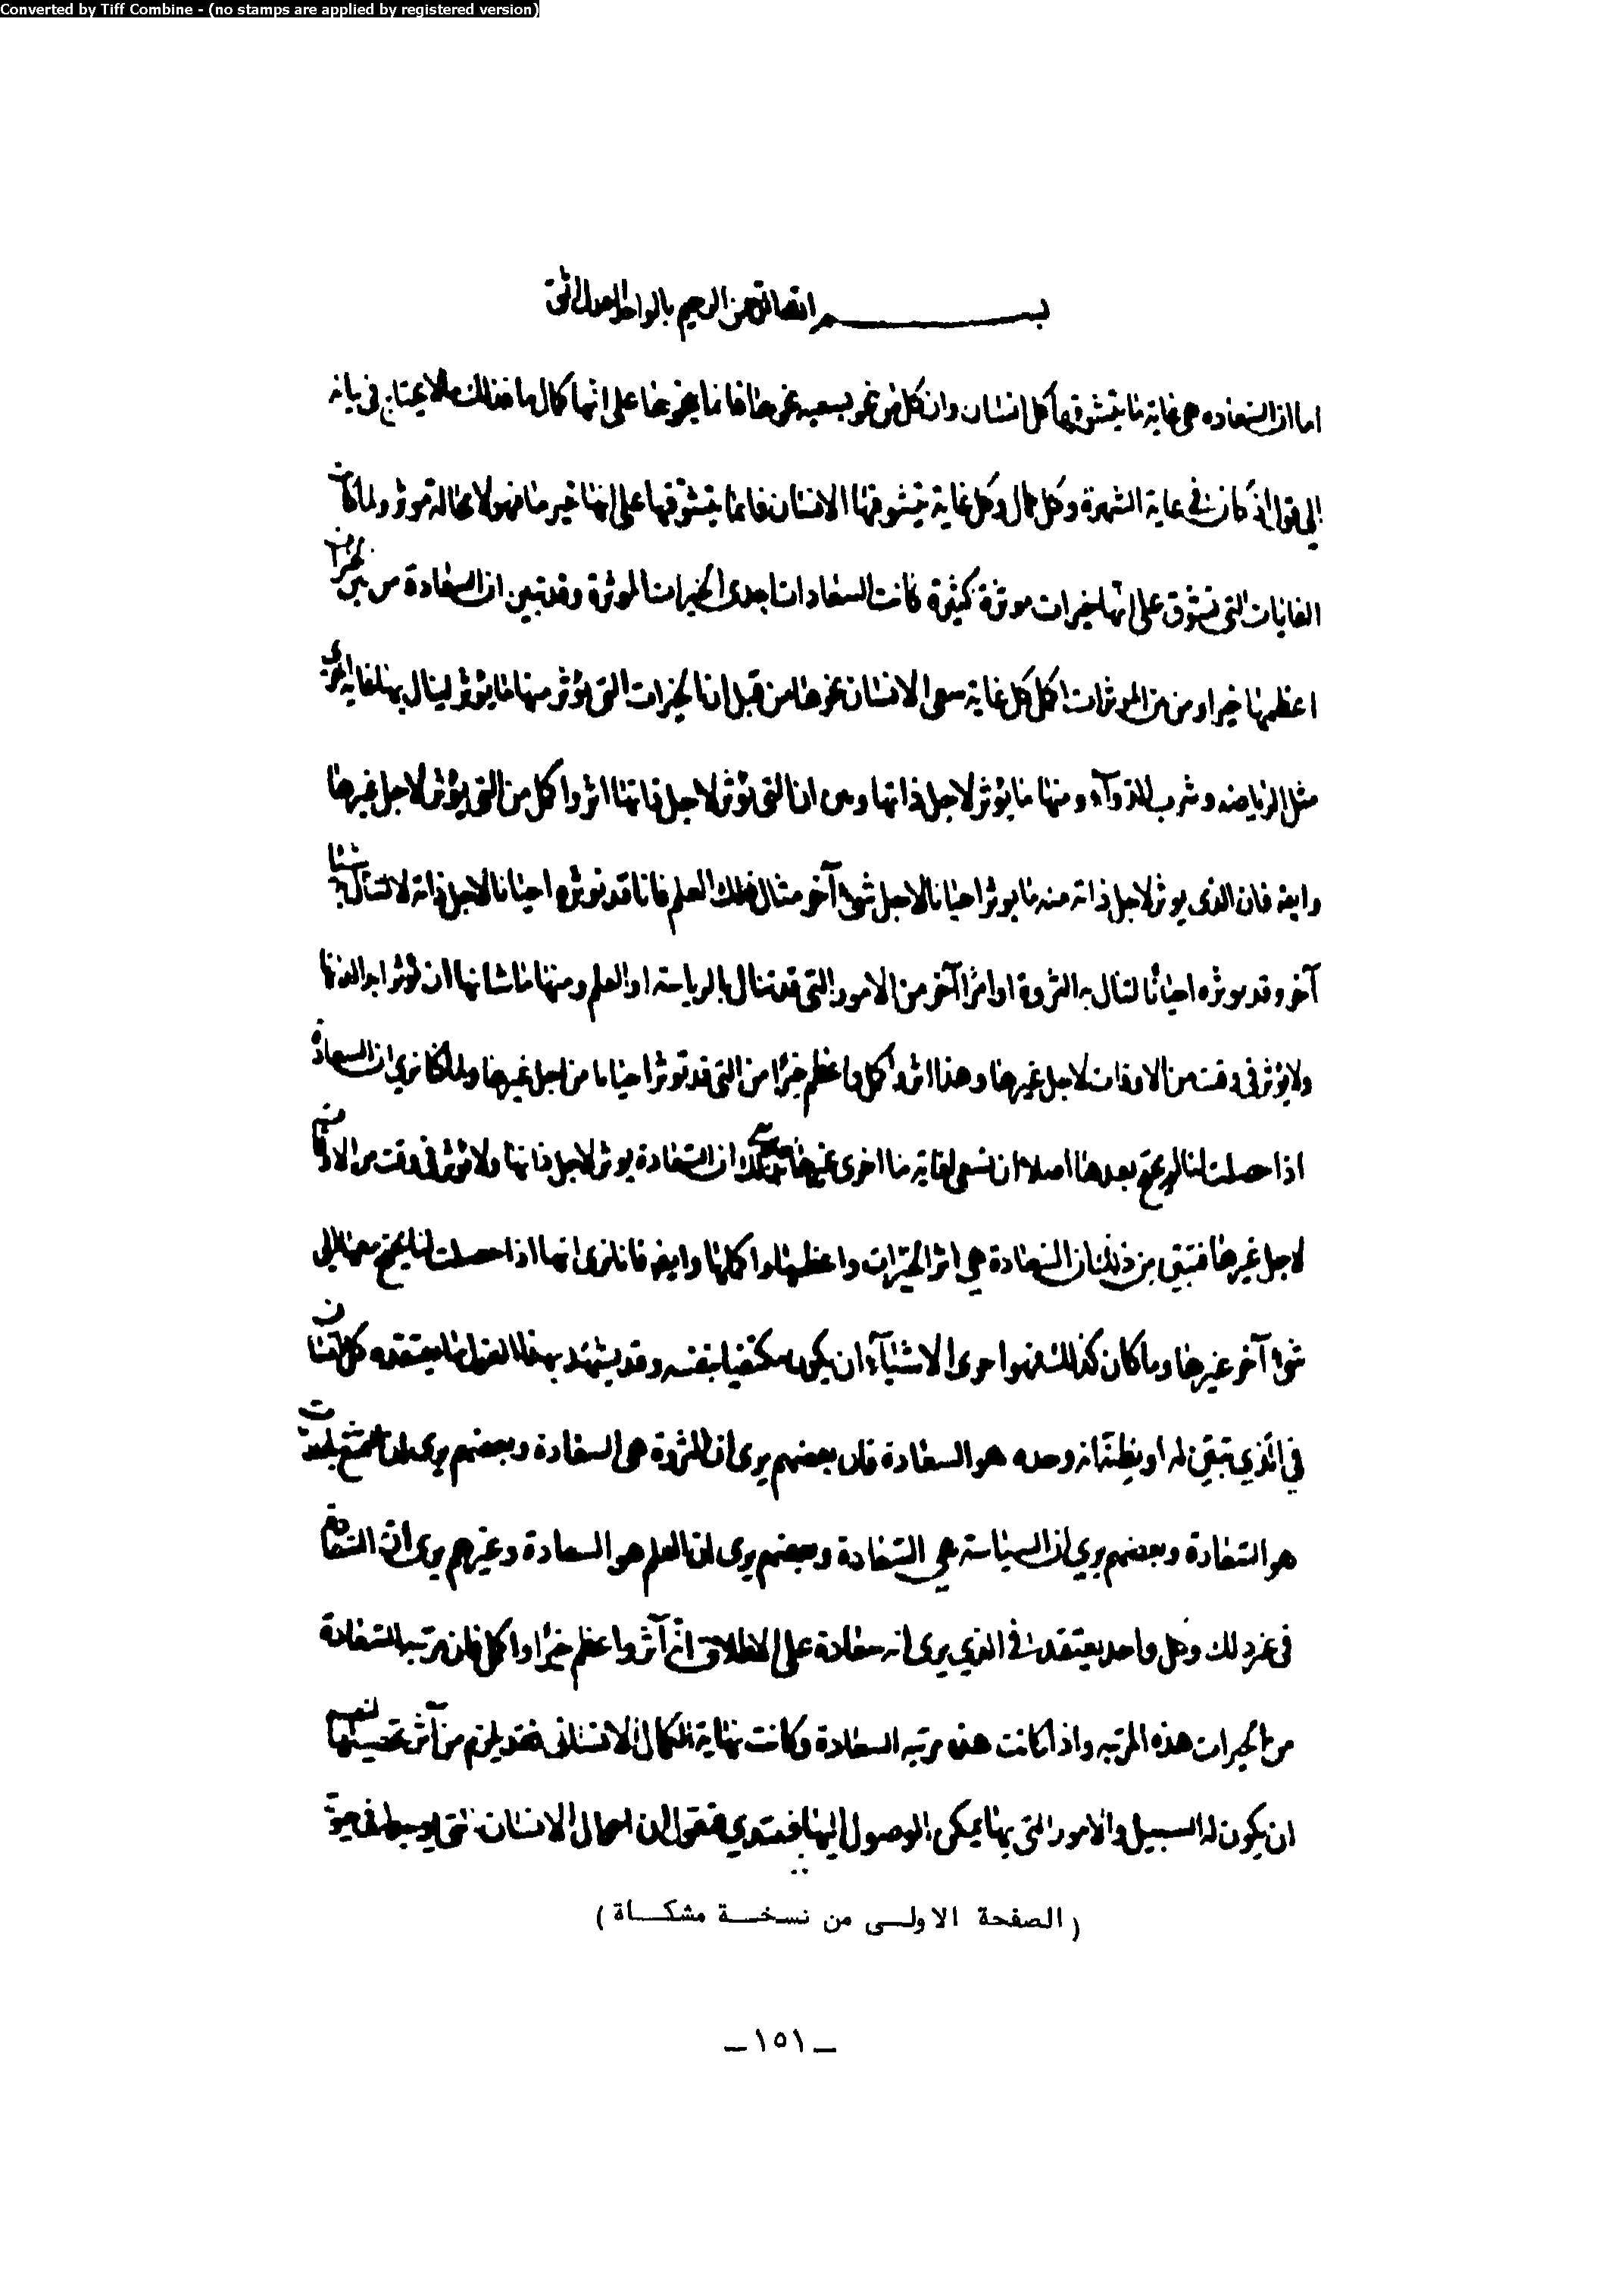 Converted by Tiff Combine - (no stamps are applied by registered version)
بسم الله الرحمن الرحيم بالواحد العدل اثق
اما ان السعاده هى غاية ما يتشوقها كل انسان وان كل من نحو بسعيه نحوها فانما ينحوها على انها كمال ما فذلك ما لا يحتاج فى بيانه
الى قول اذ كان فى غاية الشهرة وكل كمال وكل غاية يتشوقها الانسان فانما يتشوقها على انها خير ما فهو لا محالة موثر ولما كانت
الغايات التى تشوق على انها خيرات موثرة كثيرة كانت السعادات احدى الخيرات الموثرة وقد تبين ان السعادة من بين الخيرات
اعظمها خيرا ومن بين الموثرات اكمل كل غاية سعى الانسان نحوها من قبل ان الخيرات التى يؤثر منها ما يؤثر لينال بها غاية اخرى
مثل الرياضه وشرب الدوآء ومنها ما يؤثر لاجل ذاتها وبين ان التى تؤثر لاجل ذاتها اثر واكمل من التى يؤثر لاجل غيرها
وايضا فان الذى يوثر لاجل ذاته منه ما يوثر احيانا لاجل شىء آخر مثال ذلك العلم فانا قد نوثره احيانا لاجل ذاته لا لننال به شيئا
آخر وقد نوثره احيانا لننال به الثروة او امرا آخر من الامور التى قد تنال بالرياسة او العلم ومنها ما شانها ان تؤثر ابدا لذاتها
ولا يؤثر فى وقت من الاوقات لاجل غيرها وهذا اثر واكمل واعظم خيرا من التى قد توثر احيانا من اجل غيرها ولما كنا نرى ان السعادة
اذا حصلت لنا لم نحتج بعدها اصلا ان نسعى لغاية ما اخرى غيرها ان السعادة يوثر لاجل ذاتها ولا توثر فى وقت من الاوقات
لاجل غيرها فتبين من ذلك ان السعادة هى اثر الخيرات واعظمها واكملها وايضا فانا نرى انها اذا حصلت لنا لم نحتج معها الى
شىء آخر غيرها وما كان كذلك فهو احرى الاشيآء ان يكون مكتفيا بنفسه وقد يشهد بهذا القول ما يعتقده كل انسان
فى الذي تبين له او يظن انه وحده هو السعادة فان بعضهم يرى ان الثروة هى السعادة وبعضهم يرى ان التمتع باللذات
هو السعادة وبعضهم يري ان السياسة هي السعادة وبعضهم يرى ان العلم هو السعادة وغيرهم يرى ان السعادة
فى غير ذلك وكل واحد يعتقد فى الذي يرى انه سعادة على الاطلاق انه آثر واعظم خيرا واكمل فان مرتبة السعادة
من الخيرات هذه المرتبه واذا كانت هذه مرتبه السعادة وكانت نهاية الكمال الانسانى فقد يلزم من آثر تحصيلها لنفسه
ان يكون له السبيل والامور التى بها يمكن الوصول اليها فنبتدي فنقول ان احوال الانسان التى توجد له فى حيوته
( الصفحة الاولى من نسخة مشكاة )
– ١٥١ –